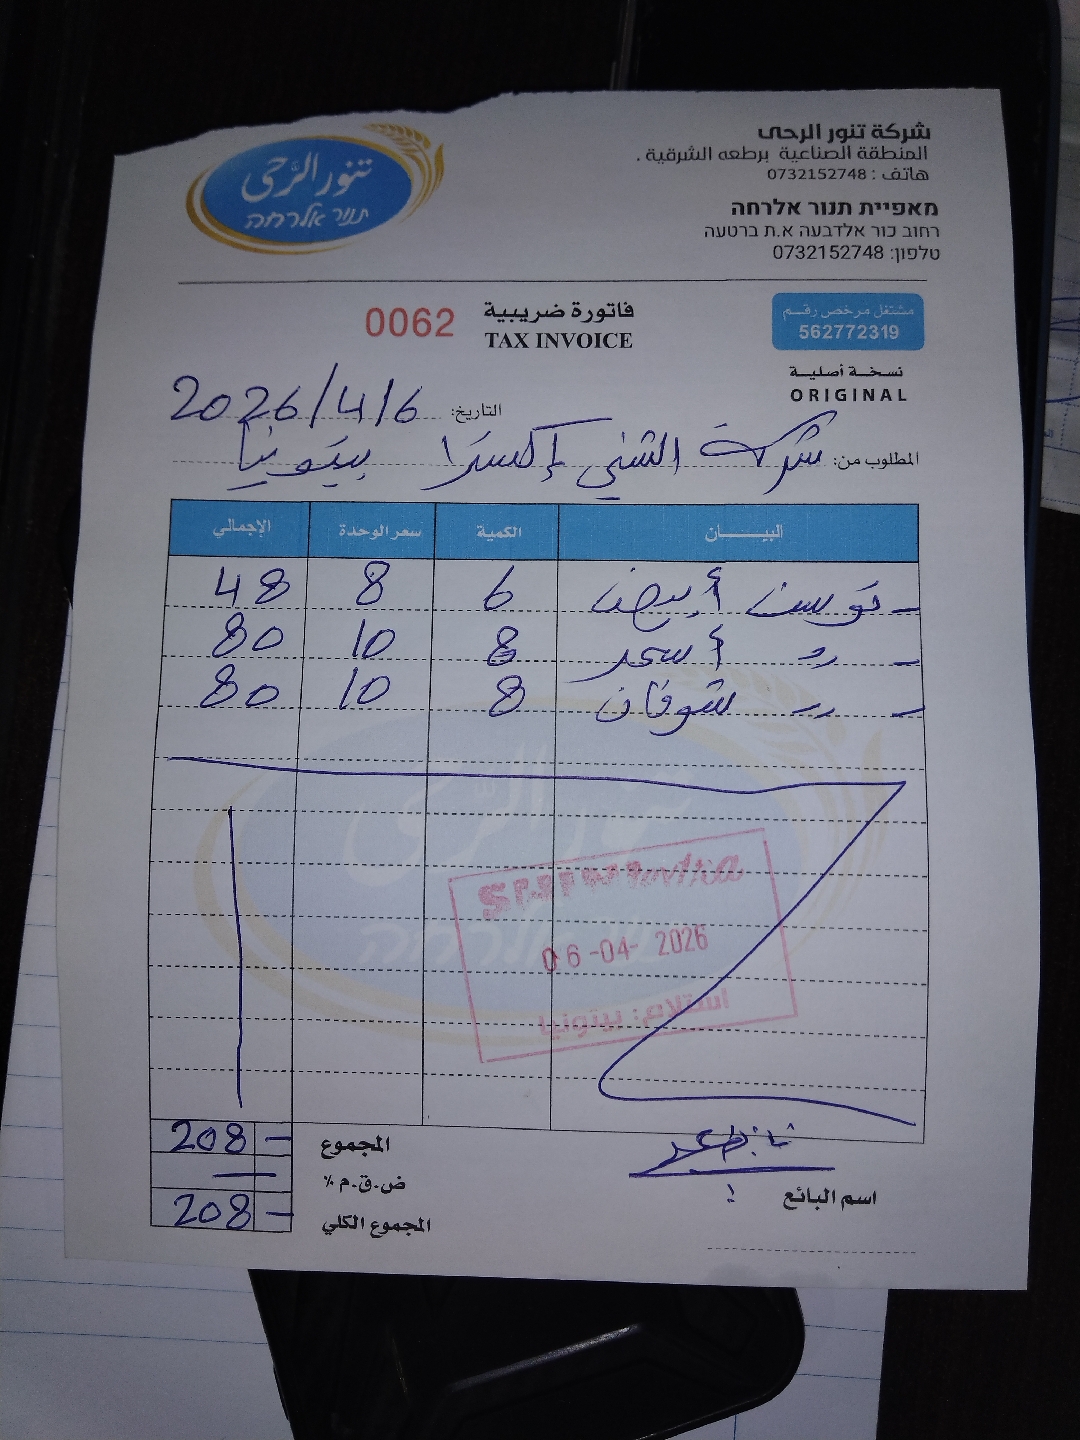 تنور الرحى
תנור אלרחה
شركة تنور الرحى
المنطقة الصناعية برطعه الشرقية .
هاتف : 0732152748
מאפיית תנור אלרחה
רחוב כור אלדבעה א.ת ברטעה
טלפון: 0732152748
مشتغل مرخص رقم
562772319
فاتورة ضريبية 0062
TAX INVOICE
نسخة أصلية
ORIGINAL
التاريخ: 2026/4/6
المطلوب من: شركة الشني إكسترا بيتونيا
البيـــــان الكمية سعر الوحدة الإجمالي
- توست أبيض 6 8 48
- 〃 أسمر 8 10 80
- 〃 شوفان 8 10 80
06-04-2026
استلام: بيتونيا
المجموع 208 -
ض.ق.م %
المجموع الكلي 208 -
اسم البائع